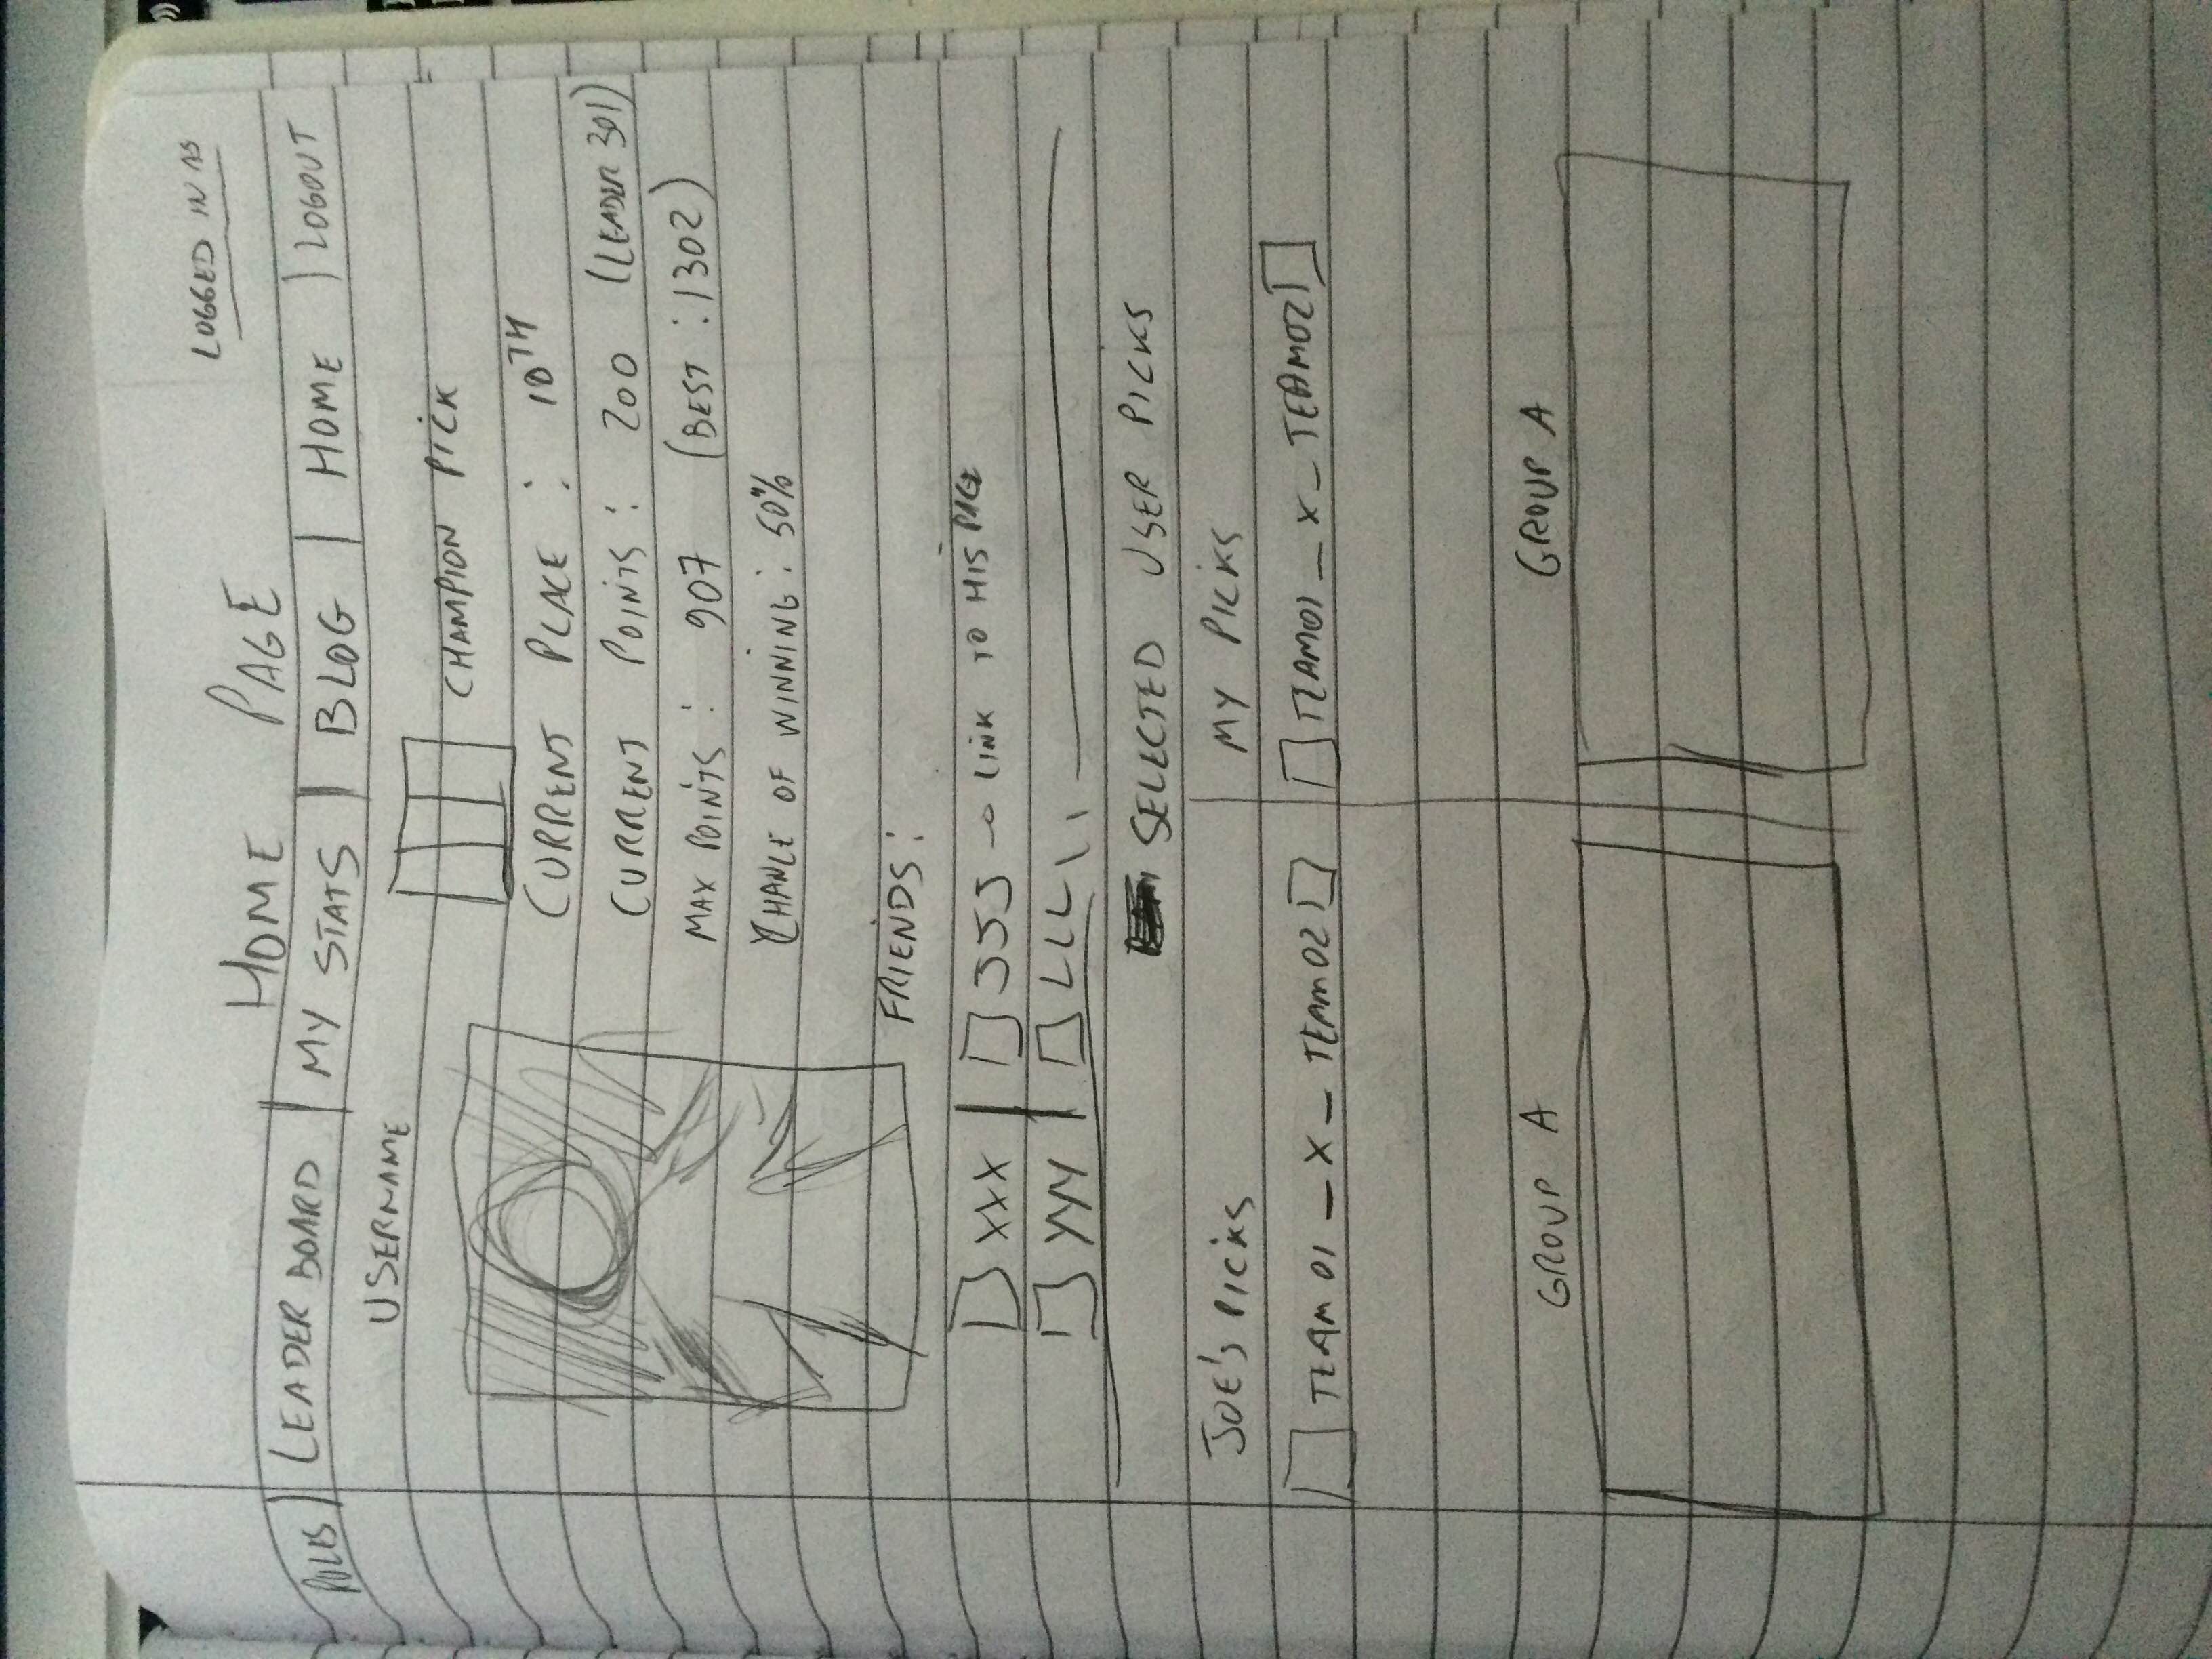 LOGGED IN AS
HOME PAGE
RULES | LEADER BOARD | MY STATS | BLOG | HOME | LOGOUT
USERNAME
CHAMPION PICK
CURRENT PLACE : 10TH
CURRENT POINTS : 200 (LEADER 301)
MAX POINTS : 907 (BEST : 1302)
CHANCE OF WINNING : 50%
FRIENDS :
XXX | JJJ → LINK TO HIS PAGE
YYY | LLL
SELECTED USER PICKS
JOE'S PICKS
MY PICKS
TEAM 01 _ X _ TEAM 02
TEAM01 _ X _ TEAM02
GROUP A
GROUP A